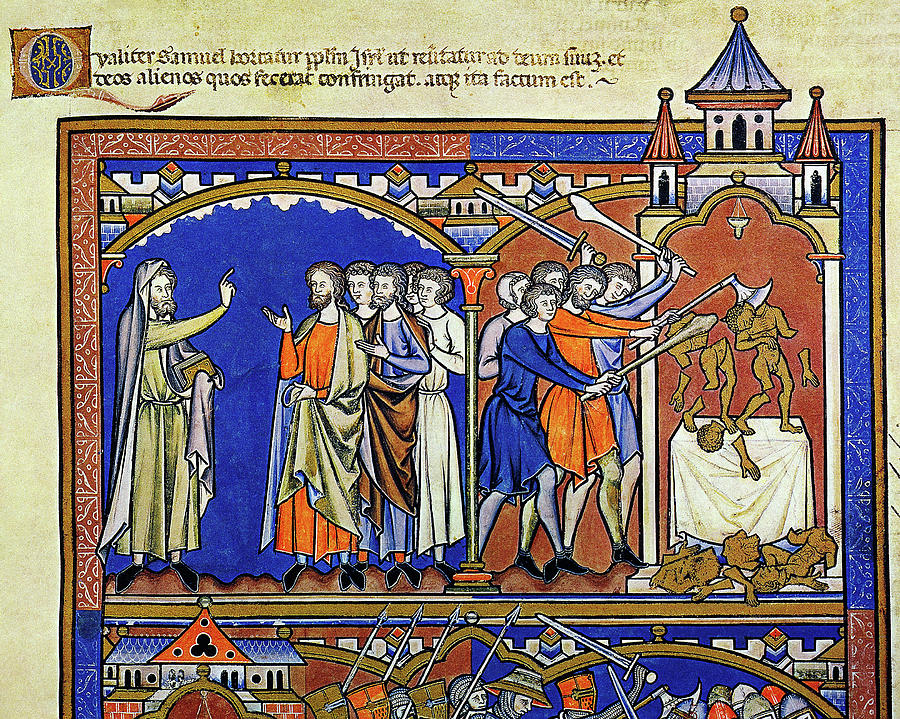 Qualiter Samuel hortatur pplm Isrl ut revertatur ad deum suuz. et
deos alienos quos fecerat confringat. atqz ita factum est. ~